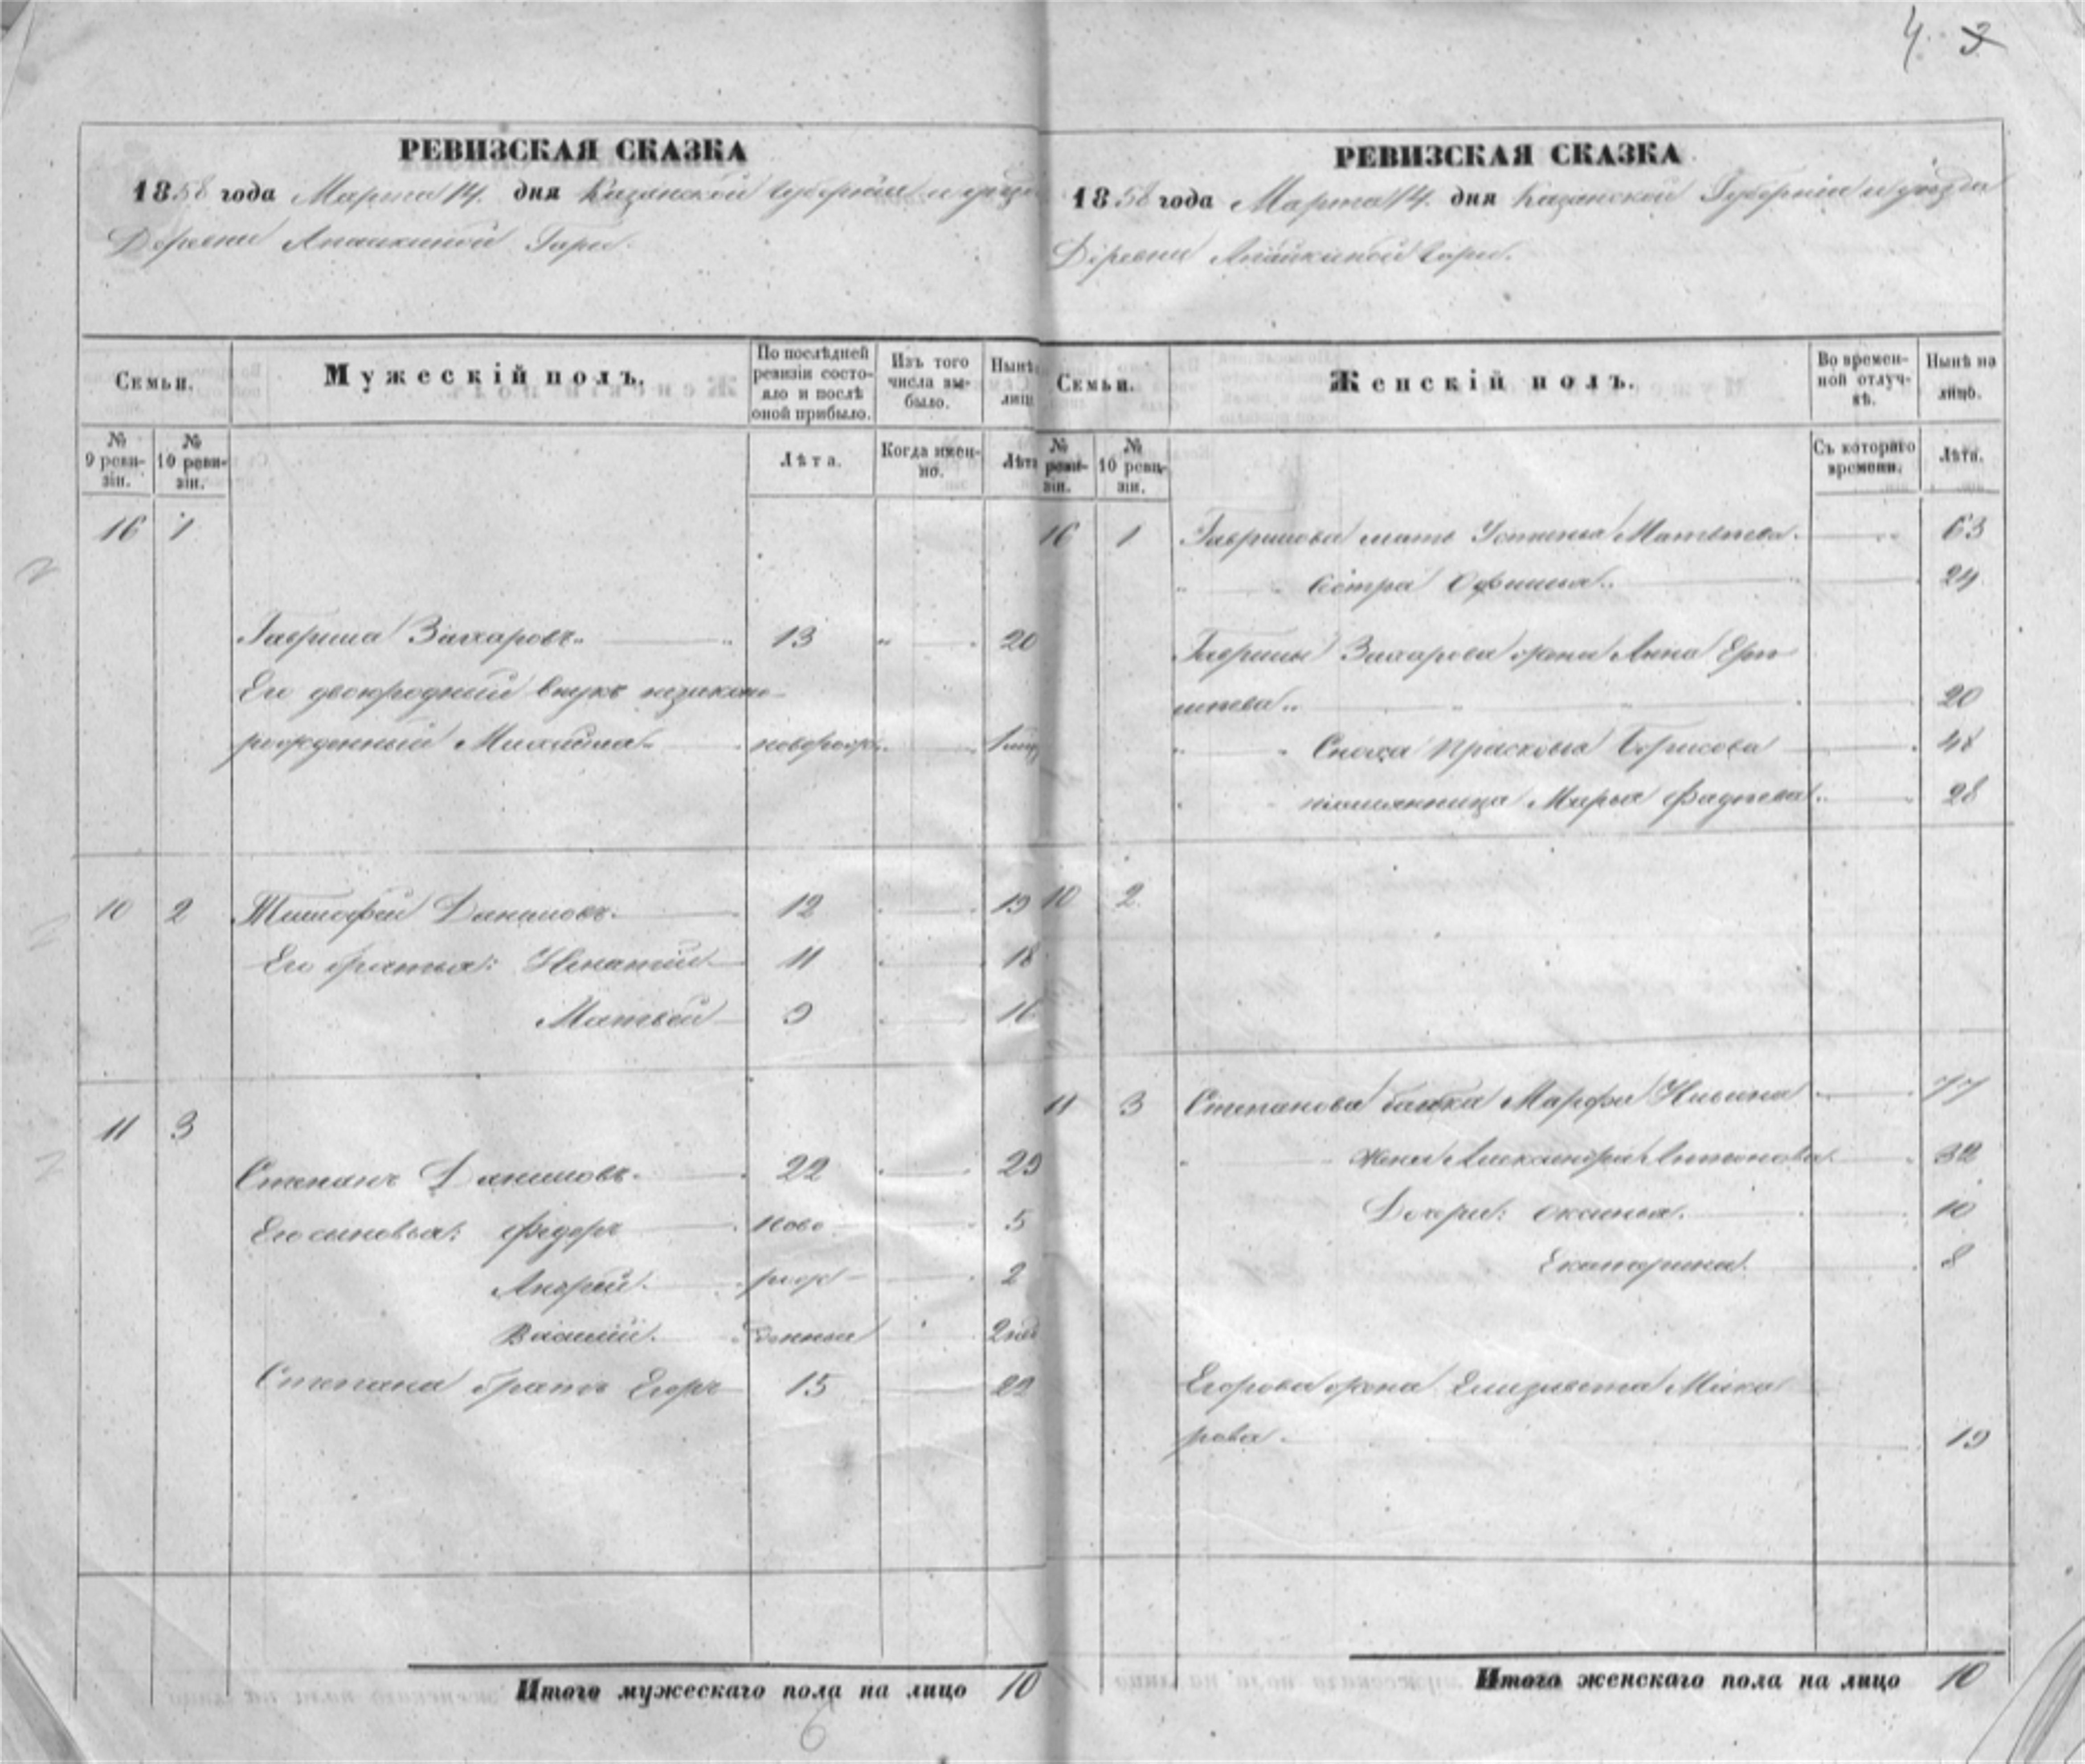 4. 3
РЕВИЗСКАЯ СКАЗКА
1858 года Марта 14. дня Казанской Губернии и уезда
Деревни Апайкиной Гари.
Семьи.
Мужескій полъ.
По послѣдней ревизіи состояло и послѣ оной прибыло.
Изъ того числа выбыло.
Нынѣ лицо
№ 9 ревизіи.
№ 10 ревизіи.
Лѣта.
Когда именно.
Лѣта
16 1
Гаврила Захаровъ 13 20
Его двоюродный внукъ незаконно-
рожденный Михайла новорож.
10 2 Тимофей Даниловъ 12 19
Его братья: Игнатий 11 18
Матвей 9 16
11 3
Степанъ Даниловъ 22 29
Его сыновья: Федоръ ново 5
Андрей рож 2
Василий денныя
Степана братъ Егоръ 15 22
Итого мужескаго пола на лицо 10
РЕВИЗСКАЯ СКАЗКА
1858 года Марта 14. дня Казанской Губернии и уезда
Деревни Апайкиной Гари.
Семьи.
Женскій полъ.
Во временной отлучкѣ.
Нынѣ на лицо.
№ ревизіи.
№ 10 ревизіи.
Съ котораго времени.
Лѣта.
16 1 Гаврилова мать Устинья Матвеева 63
Сестра Офимья 24
Гаврилы Захарова жена Анна
20
Сноха Прасковья Борисова 48
племянница Марья Фадеева 28
10 2
11 3 Степанова бабка Марфа Ильина 77
жена Александра Антонова 32
Дочери: Оксинья 10
Екатерина 8
Егорова жена Елизавета Мака
рова 19
Итого женскаго пола на лицо 10